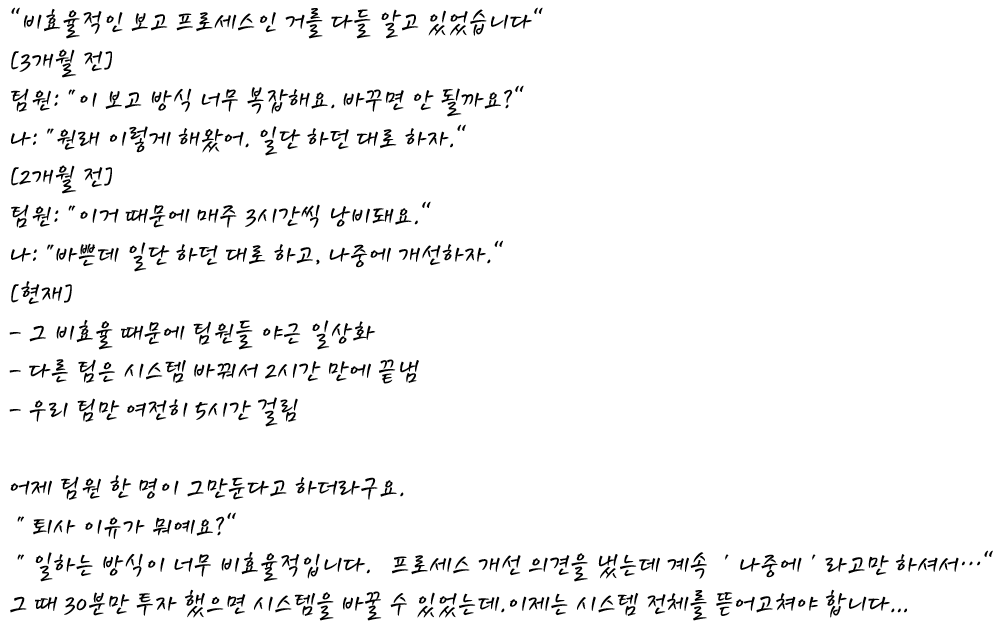 “비효율적인 보고 프로세스인 거를 다들 알고 있었습니다“
[3개월 전]
팀원: "이 보고 방식 너무 복잡해요. 바꾸면 안 될까요?“
나: "원래 이렇게 해왔어. 일단 하던 대로 하자.“
[2개월 전]
팀원: "이거 때문에 매주 3시간씩 낭비돼요.“
나: "바쁜데 일단 하던 대로 하고, 나중에 개선하자.“
[현재]
- 그 비효율 때문에 팀원들 야근 일상화
- 다른 팀은 시스템 바꿔서 2시간 만에 끝냄
- 우리 팀만 여전히 5시간 걸림
어제 팀원 한 명이 그만둔다고 하더라구요.
" 퇴사 이유가 뭐예요?“
" 일하는 방식이 너무 비효율적입니다. 프로세스 개선 의견을 냈는데 계속 ' 나중에 ' 라고만 하셔서…“
그 때 30분만 투자 했으면 시스템을 바꿀 수 있었는데.이제는 시스템 전체를 뜯어고쳐야 합니다...